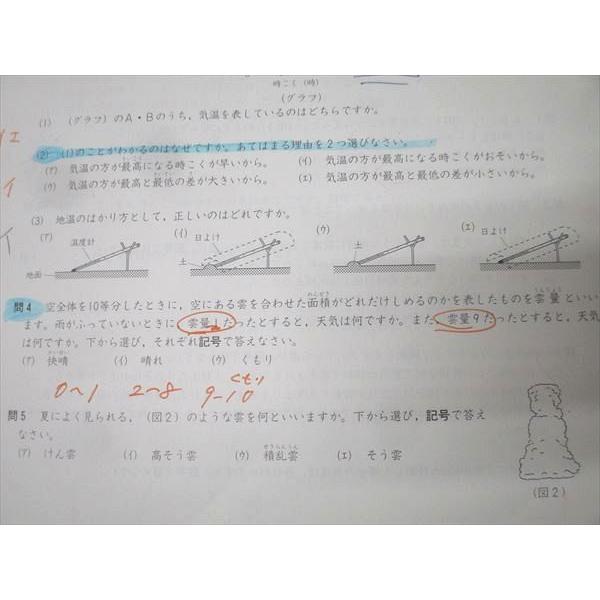 時こく(時)
(グラフ)
(1) (グラフ)のA・Bのうち,気温を表しているのはどちらですか。
(2) (1)のことがわかるのはなぜですか。あてはまる理由を2つ選びなさい。
(ア) 気温の方が最高になる時こくが早いから。 (イ) 気温の方が最高になる時こくがおそいから。
(ウ) 気温の方が最高と最低の差が大きいから。 (エ) 気温の方が最高と最低の差が小さいから。
(3) 地温のはかり方として,正しいのはどれですか。
(ア) (イ) 日よけ (ウ) (エ)
温度計 土 日よけ
地面 土
問4 空全体を10等分したときに,空にある雲を合わせた面積がどれだけしめるのかを表したものを雲量といい
ます。雨がふっていないときに雲量1だったとすると,天気は何ですか。また,雲量9だったとすると,天気
は何ですか。下から選び,それぞれ記号で答えなさい。
(ア) 快晴 (イ) 晴れ (ウ) くもり
くもり
0~1 2~8 9-10
問5 夏によく見られる,(図2)のような雲を何といいますか。下から選び,記号で答え
なさい。
(ア) けん雲 (イ) 高そう雲 (ウ) 積乱雲 (エ) そう雲
(図2)